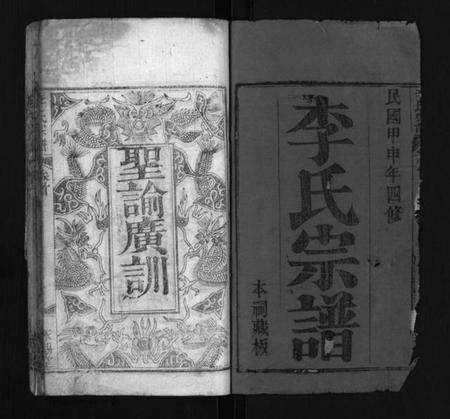 民國甲申年四修
李氏宗譜
本祠藏板
聖諭廣訓